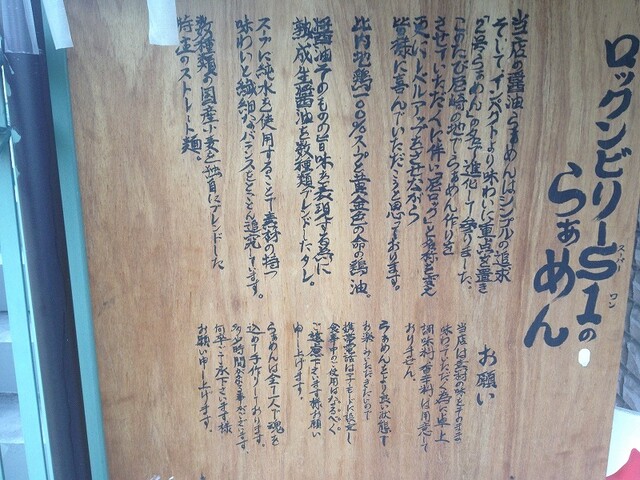 ロックンビリーS1の
スーパー ワン
らぁめん
当店の醤油らぁめんはシンプルの追求
そしてインパクトより味わいに重点を置き
らぁめん」の名で進化して参りました。
このたび尼崎の地でらぁめん作りを
させていただくに伴い「尼ロック」と名称を変え
更にレベルアップをさせながら
皆様に喜んでいただこうと思っております。
比内地鶏100%スープと黄金色の命の鶏油。
醤油そのものの旨味を表現する為に
熟成生醤油を数種類ブレンドしたタレ。
スープに純水を使用することで素材の持つ
味わいと繊細なバランスをとことん追究しています。
数種類の国産小麦を独自にブレンドした
特注のストレート麺。
お願い
当店は素材の味をそのまま
味わっていただく為に卓上
調味料、香辛料は用意して
おりません。
らぁめんをより良い状態で
お楽しみいただきたいので
携帯電話はマナーモードに設定し
食事中のご使用はなるべく
ご遠慮下さいます様お願い
申し上げます。
らぁめんは全て一人で魂を
込めて手作りしております。
多少時間がかかる事がございます。
何卒ご了承下さいます様
お願い申し上げます。